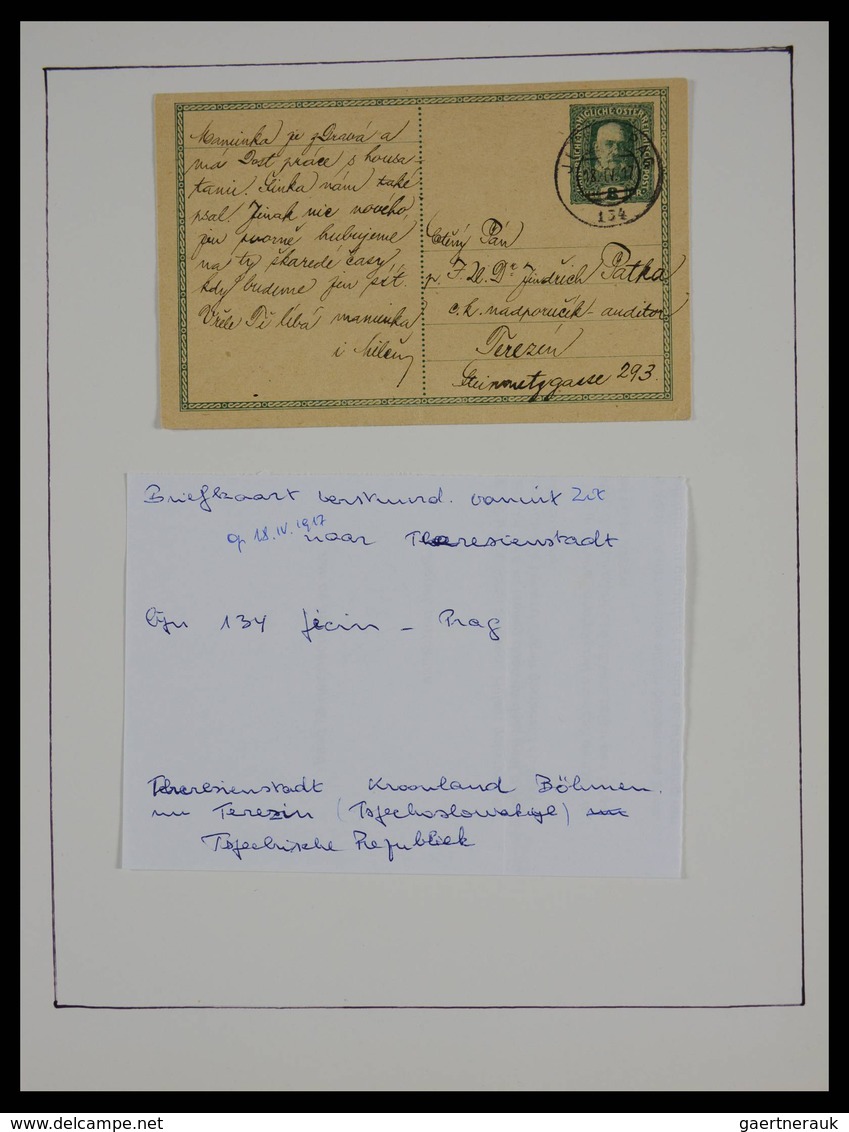 Maminka je zdravá a
má Dost práce s housa-
tami. Činka nám také
psal. Jinak nic nového
jen svorně hubujeme
na ty škaredé časy,
kdy budeme jen pít.
Vřele Tě líbá maminka
i
18.IV.17
8
134
Ctěný Pán
p. Dr Jindřich Patka
c.k. nadporučík-auditor
Terezín
Steinmetzgasse 293.
Briefkaart verstuurd. vanuit
op 18.IV.1917 naar Theresienstadt
lijn 134 Jicin - Prag
Theresienstadt Kroonland Böhmen.
nu Terezin (Tsjechoslowakije)
Tsjechische Republiek
gaertnerauk